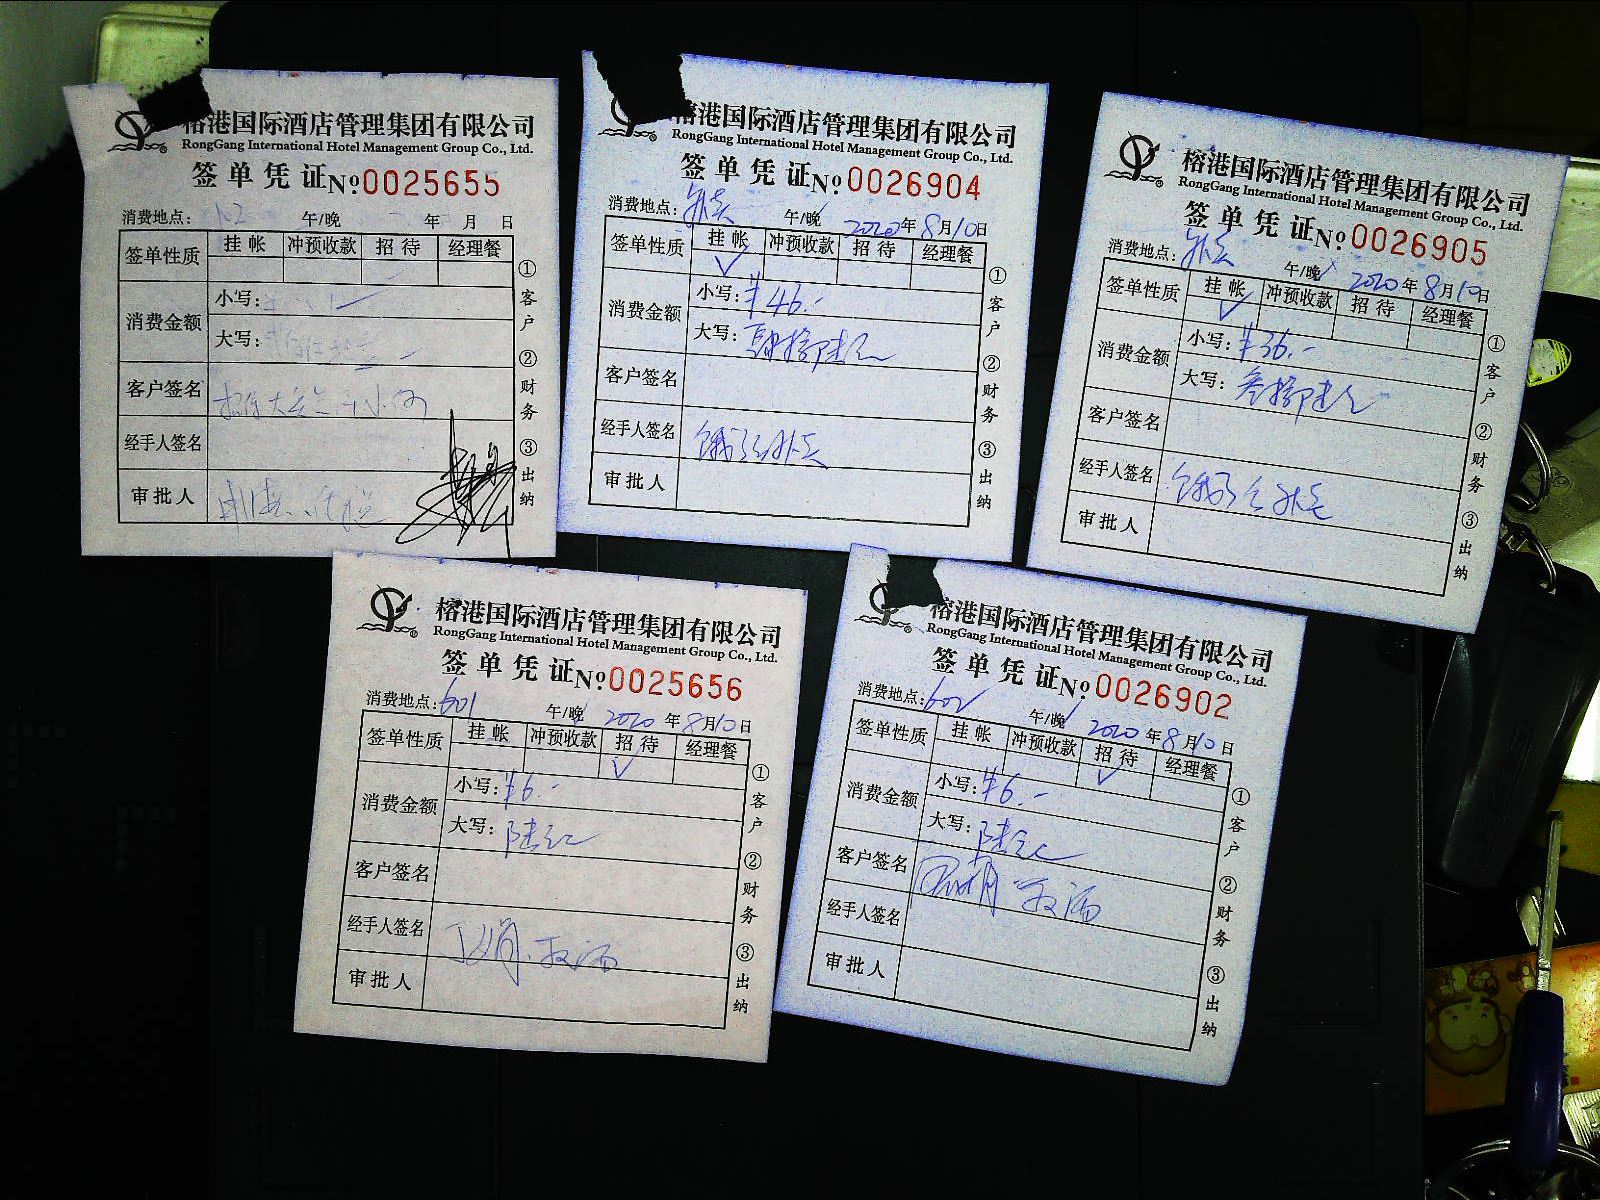 榕港国际酒店管理集团有限公司
RongGang International Hotel Management Group Co., Ltd.
签单凭证 No 0025655
消费地点: 午/晚 年 月 日
签单性质 挂帐 冲预收款 招待 经理餐
消费金额
小写:
大写:
客户签名
经手人签名
审批人
①客户 ②财务 ③出纳
榕港国际酒店管理集团有限公司
RongGang International Hotel Management Group Co., Ltd.
签单凭证 No 0026904
消费地点: 外卖 午/晚 2020年8月10日
签单性质 挂帐 冲预收款 招待 经理餐
✓
消费金额
小写: ¥46.-
大写: 肆拾陆元
客户签名
经手人签名 饿了么外卖
审批人
①客户 ②财务 ③出纳
榕港国际酒店管理集团有限公司
RongGang International Hotel Management Group Co., Ltd.
签单凭证 No 0026905
消费地点: 外卖 午/晚 2020年8月10日
签单性质 挂帐 冲预收款 招待 经理餐
✓
消费金额
小写: ¥36.-
大写: 叁拾陆元
客户签名
经手人签名 饿了么外卖
审批人
①客户 ②财务 ③出纳
榕港国际酒店管理集团有限公司
RongGang International Hotel Management Group Co., Ltd.
签单凭证 No 0025656
消费地点: 601 午/晚 2020年8月10日
签单性质 挂帐 冲预收款 招待 经理餐
✓
消费金额
小写: ¥6.-
大写: 陆元
客户签名
经手人签名
审批人
①客户 ②财务 ③出纳
榕港国际酒店管理集团有限公司
RongGang International Hotel Management Group Co., Ltd.
签单凭证 No 0026902
消费地点: 602 午/晚 2020年8月10日
签单性质 挂帐 冲预收款 招待 经理餐
✓
消费金额
小写: ¥6.-
大写: 陆元
客户签名
经手人签名
审批人
①客户 ②财务 ③出纳